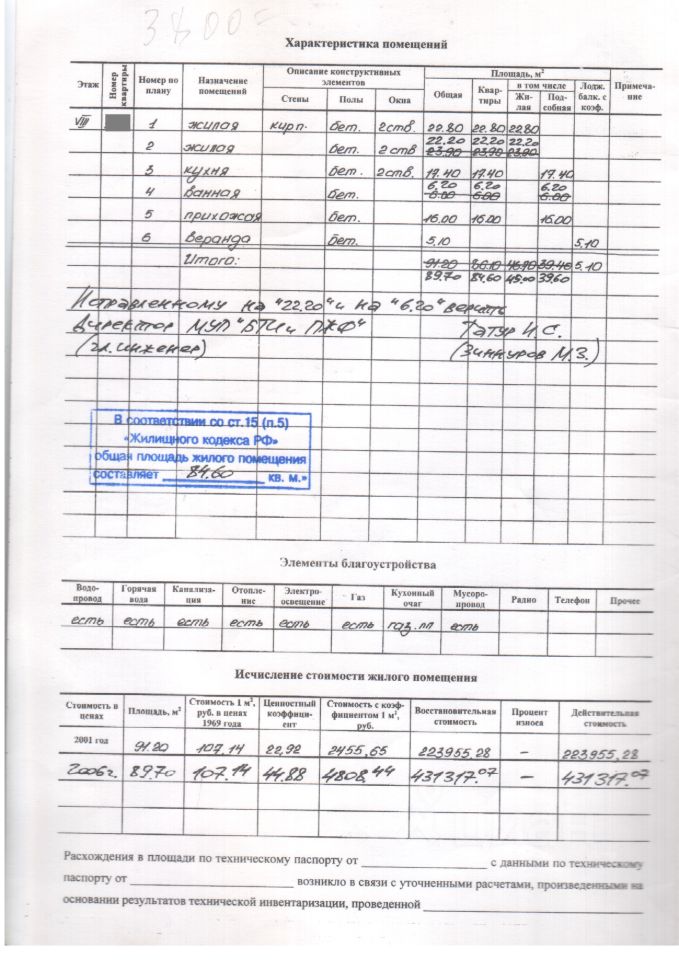 3800=
Характеристика помещений
Этаж Номер квартиры Номер по плану Назначение помещений Описание конструктивных элементов Площадь, м² Примеча-ние
Стены Полы Окна Общая Квар-тиры в том числе Лодж. балк. с коэф.
Жи-лая Под-собная
VIII 1 жилая кирп. бет. 2ств. 22.80 22.80 22.80
22.20 22.20 22.20
2 жилая бет. 2 ств 23.90 23.90 23.90
3 кухня бет. 2ств. 17.40 17.40
6.20 6.20 6.20
4 ванная бет. 6.00 6.00 6.00
5 прихожая бет. 16.00 16.00 16.00
6 веранда бет. 5.10 5.10
Итого: 91.20 86.10 46.70 39.40 5,10
89.70 84.60 45.00 39.60
Исправленному на "22.20" и на "6.20" верить
Директор МУП "БТИ и ПЖФ" Татур И.С.
(гл.инженер) (Зиннуров М.З.)
В соответствии со ст.15 (п.5)
«Жилищного кодекса РФ»
общая площадь жилого помещения
составляет 84.60 кв. м.»
Элементы благоустройства
Водо-провод Горячая вода Канализа-ция Отопле-ние Электро-освещение Газ Кухонный очаг Мусоро-провод Радио Телефон Прочее
есть есть есть есть есть есть газ.пл есть
Исчисление стоимости жилого помещения
Стоимость в ценах Площадь, м² Стоимость 1 м², руб. в ценах 1969 года Ценностный коэффици-ент Стоимость с коэф-фициентом 1 м², руб. Восстановительная стоимость Процент износа Действительная стоимость
2001 год 91.20 107.14 22,92 2455,65 223955,28 – 223955,28
2006г. 89.70 107.14 44.88 4808.44 431317.07 – 431317.07
Расхождения в площади по техническому паспорту от ____ с данными по техническому
паспорту от ____ возникло в связи с уточненными расчетами, произведенными на
основании результатов технической инвентаризации, проведенной ____